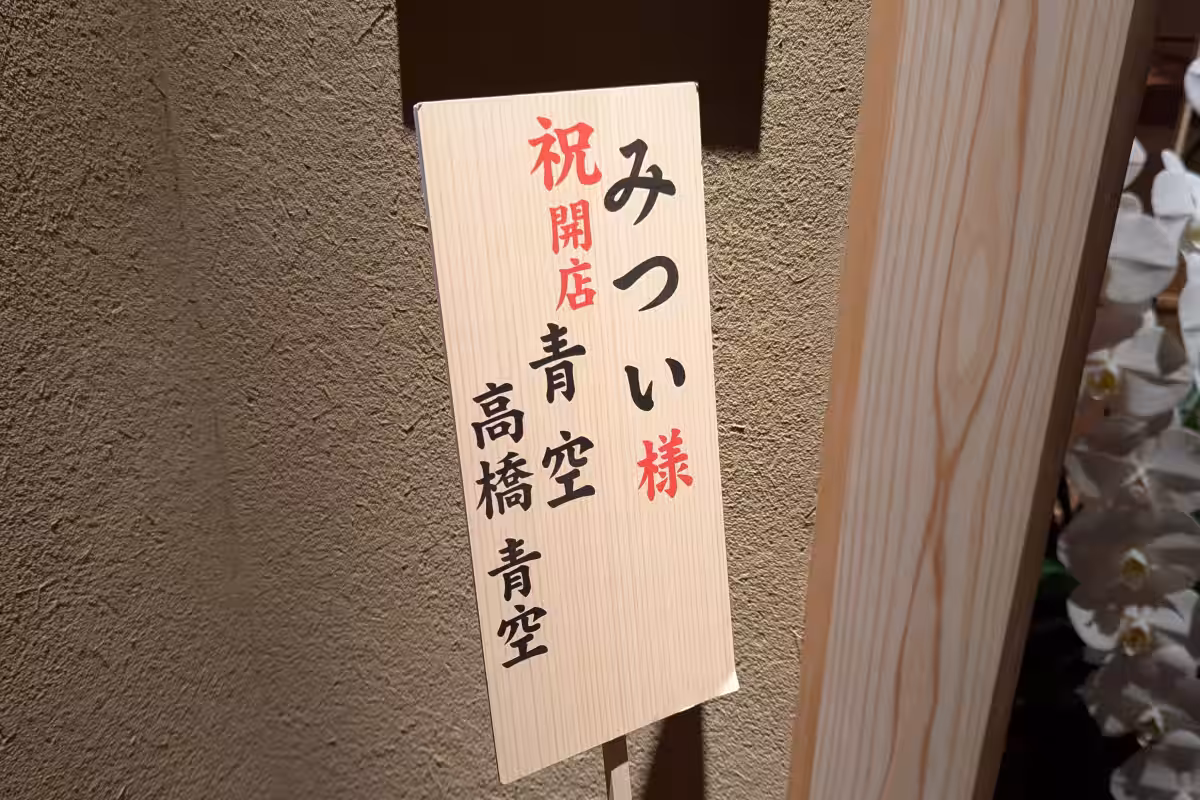 みつい様
祝開店
青空
高橋青空